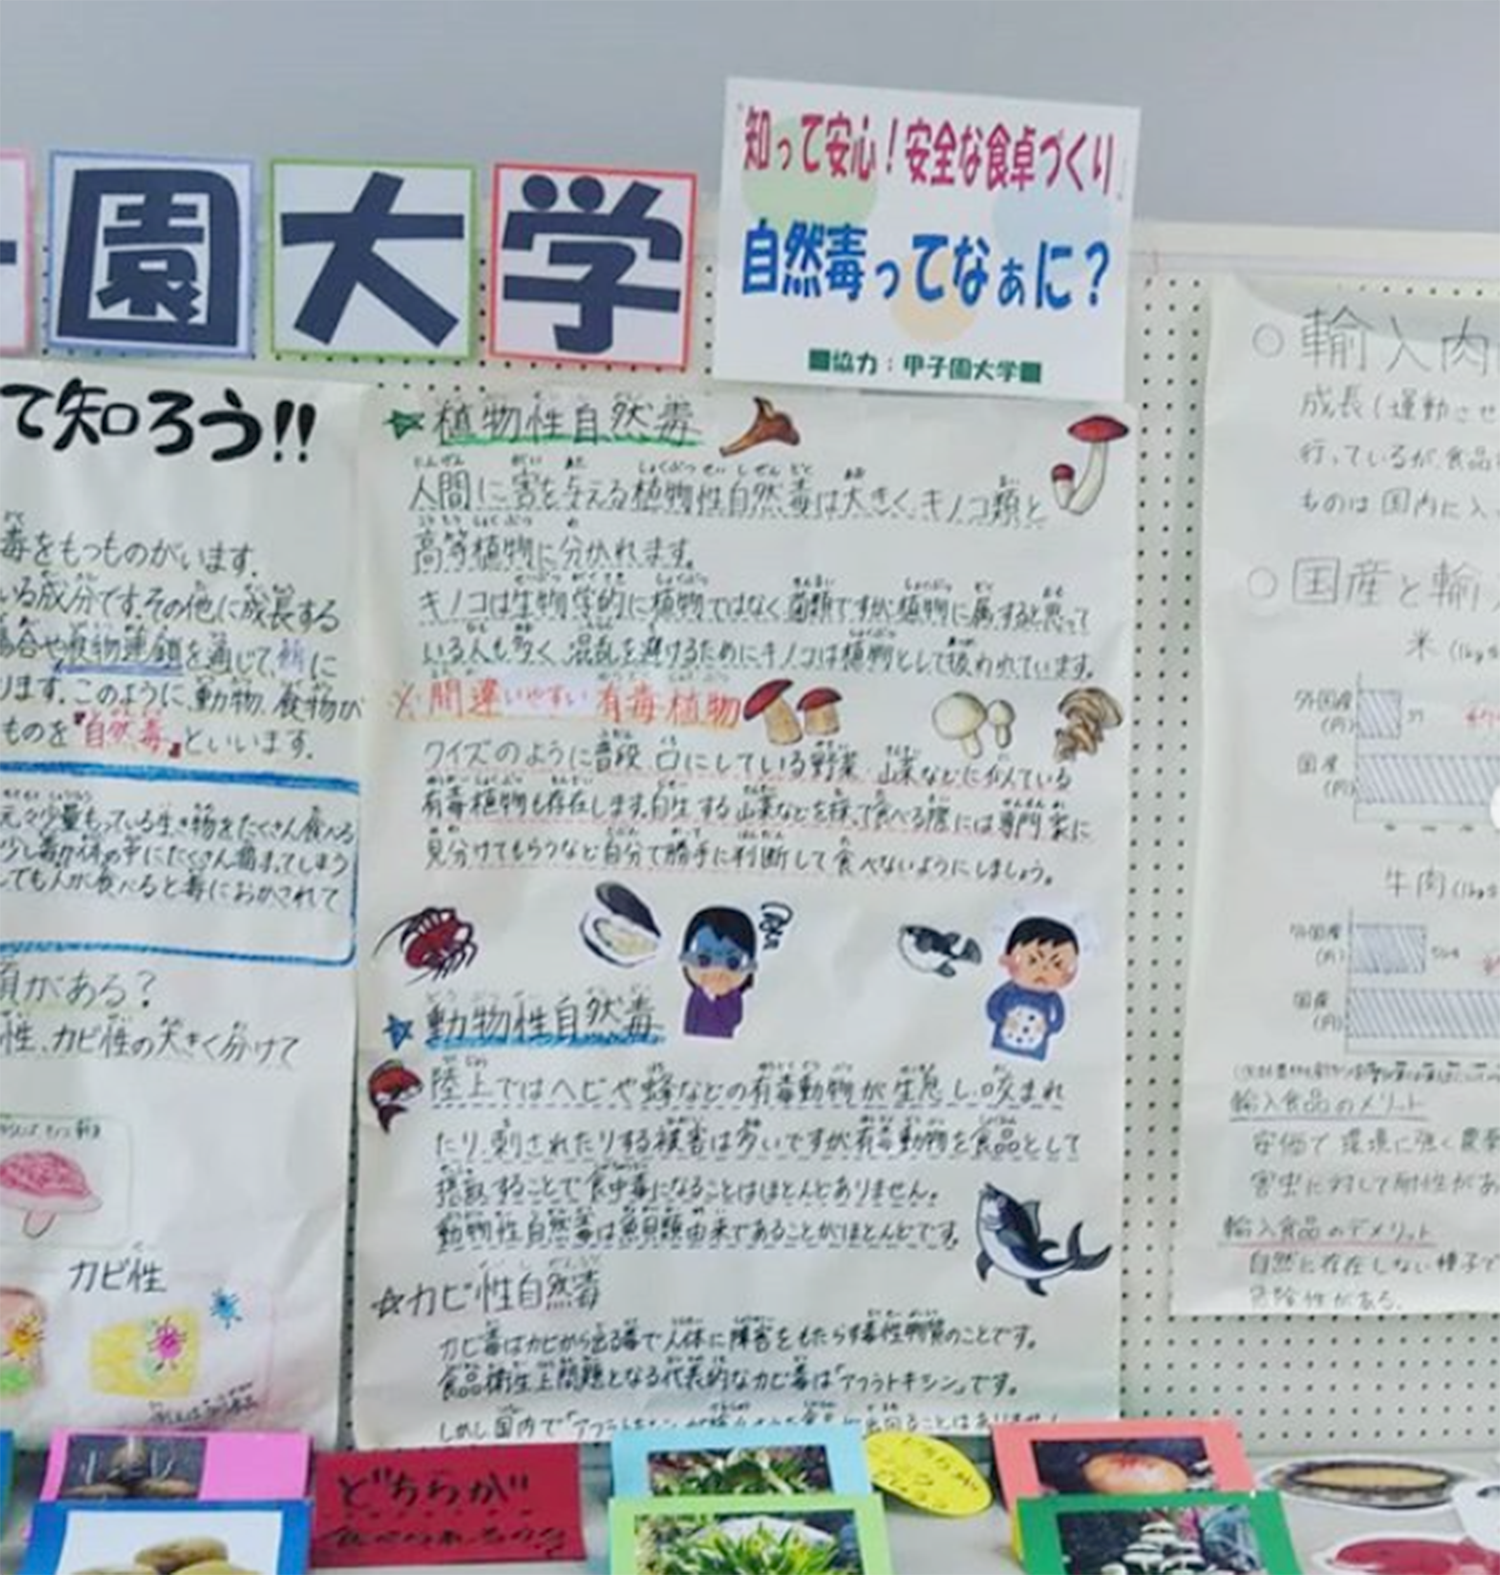 園大学
知って安心！安全な食卓づくり
自然毒ってなぁに？
■協力：甲子園大学■
て知ろう!!
毒をもつものがいます。
いる成分です。その他に成長する
場合や食物連鎖を通じて、餌に
ります。このように、動物、食物が
ものを『自然毒』といいます。
元々少量もっている生き物をたくさん食べる
少し毒が体の中にたくさん溜まってしまう
しても人が食べると毒におかされて
類がある？
性、カビ性の大きく分けて
カビ性
☆植物性自然毒
人間に害を与える植物性自然毒は大きく、キノコ類と
高等植物に分かれます。
キノコは生物学的に植物ではなく菌類ですが植物に属すると思って
いる人も多く、混乱を避けるためにキノコは植物として扱われています。
※間違いやすい有毒植物
クイズのように普段口にしている野菜・山菜などに似ている
有毒植物も存在します。自生する山菜などを採って食べる際には専門家に
見分けてもらうなど自分で勝手に判断して食べないようにしましょう。
☆動物性自然毒
陸上ではヘビや蜂などの有毒動物が生息し、咬まれ
たり、刺されたりする被害は多いですが有毒動物を食品として
摂取することで食中毒になることはほとんどありません。
動物性自然毒は魚貝類由来であることがほとんどです。
☆カビ性自然毒
カビ毒はカビから出る毒で人体に障害をもたらす毒性物質のことです。
食品衛生上問題となる代表的なカビ毒は「アフラトキシン」です。
しかし国内で「アフラトキシン
出回ることはありません
どちらが
食べられるの？
○輸入肉
成長(運動させ
行っているが、食品
ものは国内に入っ
○国産と輸入
米(1kg
外国産
(円)
国産
(円)
牛肉(1kg
外国産
(円)
国産
(円)
輸入食品のメリット
安価で環境に強く農薬
害虫に対して耐性があ
輸入食品のデメリット
自然に存在しない種子で
危険性がある。